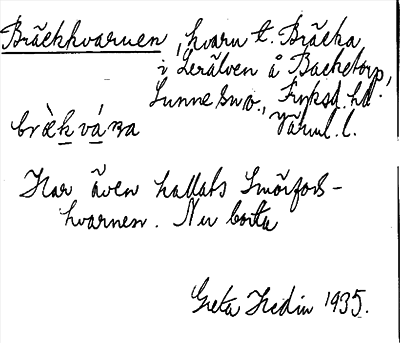 Bräckkvarnen, kvarn t. Bräcka
i Lerälven å Backetorp,
Sunne sn o., Fryksd. hd.
bræ̀kvá̱ɳa Värml. l.
Har även kallats Smörfors-
kvarnen. Nu borta
Greta Hedin 1935.